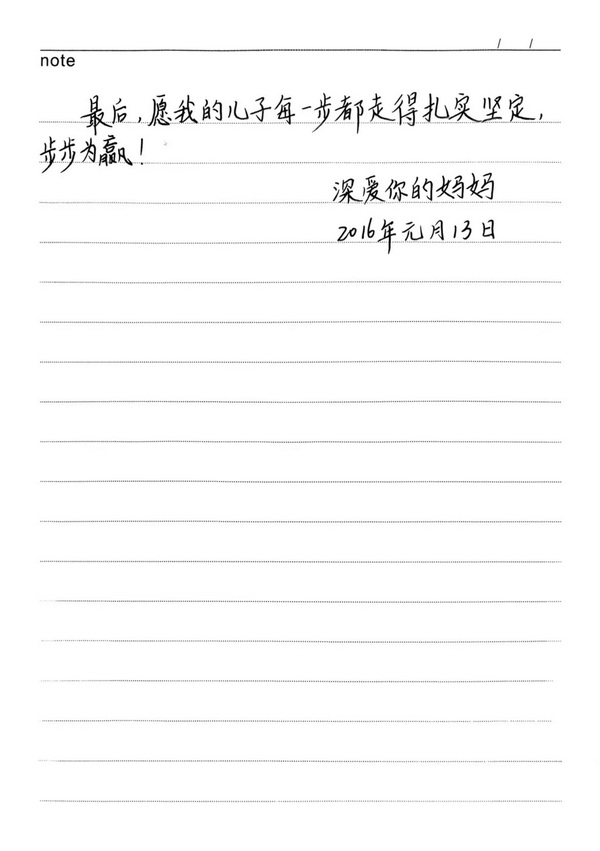 / /
note
最后，愿我的儿子每一步都走得扎实坚定，
步步为赢！
深爱你的妈妈
2016年元月13日